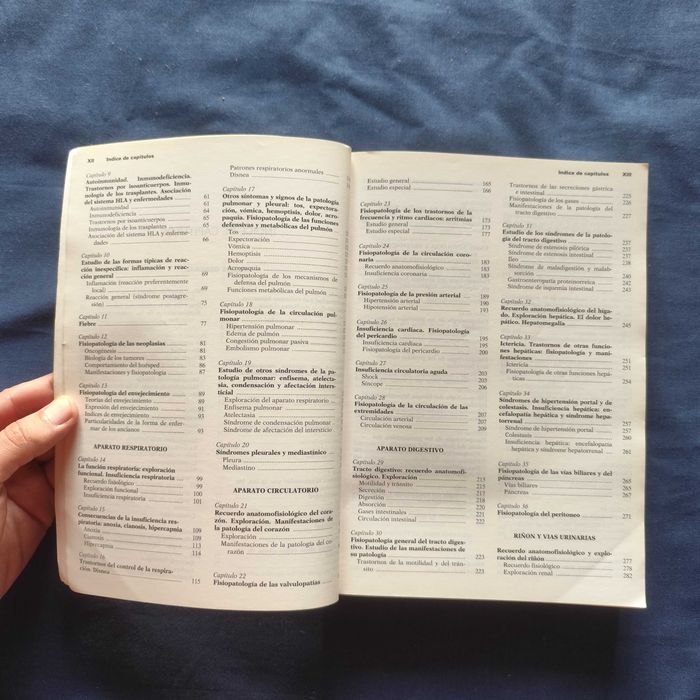 XII Indice de capítulos
Capítulo 9
Autoinmunidad. Inmunodeficiencia.
Trastornos por isoanticuerpos. Inmuno-
logía de los trasplantes. Asociación
del sistema HLA y enfermedades 61
Autoinmunidad 61
Inmunodeficiencia 64
Trastornos por isoanticuerpos 65
Inmunología de los trasplantes 65
Asociación del sistema HLA y enferme-
dades 66
Capítulo 10
Estudio de las formas típicas de reac-
ción inespecífica: inflamación y reac-
ción general 69
Inflamación (reacción preferentemente
local) 69
Reacción general (síndrome postagre-
sión) 75
Capítulo 11
Fiebre 77
Capítulo 12
Fisiopatología de las neoplasias 81
Oncogénesis 81
Biología de los tumores 83
Comportamiento del huésped 86
Manifestaciones y fisiopatología 87
Capítulo 13
Fisiopatología del envejecimiento 89
Teorías del envejecimiento 89
Expresión del envejecimiento 91
Indices de envejecimiento 93
Particularidades de la forma de enfer-
mar de los ancianos 93
APARATO RESPIRATORIO
Capítulo 14
La función respiratoria: exploración
funcional. Insuficiencia respiratoria 99
Recuerdo fisiológico 99
Exploración funcional 100
Insuficiencia respiratoria 101
Capítulo 15
Consecuencias de la insuficiencia res-
piratoria: anoxia, cianosis, hipercapnia 109
Anoxia 109
Cianosis 113
Hipercapnia 114
Capítulo 16
Trastornos del control de la respira-
ción. Disnea 115
Patrones respiratorios anormales
Disnea
Capítulo 17
Otros síntomas y signos de la patología
pulmonar y pleural: tos, expectora-
ción, vómica, hemoptisis, dolor, acro-
paquia. Fisiopatología de las funciones
defensivas y metabólicas del pulmón
Tos
Expectoración
Vómica
Hemoptisis
Dolor
Acropaquia
Fisiopatología de los mecanismos de
defensa del pulmón
Funciones metabólicas del pulmón
Capítulo 18
Fisiopatología de la circulación pul-
monar
Hipertensión pulmonar
Edema pulmonar
Congestión pulmonar pasiva
Embolismo pulmonar
Capítulo 19
Estudio de otros síndromes de la pa-
tología pulmonar: enfisema, atelecta-
sia, condensación y afectación inters-
ticial
Exploración del aparato respiratorio
Enfisema pulmonar
Atelectasia
Síndrome de condensación pulmonar
Síndrome de afectación del intersticio
Capítulo 20
Síndromes pleurales y mediastínico
Pleura
Mediastino
APARATO CIRCULATORIO
Capítulo 21
Recuerdo anatomofisiológico del cora-
zón. Exploración. Manifestaciones de
la patología del corazón
Exploración
Manifestaciones de la patología del co-
razón
Capítulo 22
Fisiopatología de las valvulopatías
Indice de capítulos XIII
Estudio general 165
Estudio especial 166
Capítulo 23
Fisiopatología de los trastornos de la
frecuencia y ritmo cardíacos: arritmias 173
Estudio general 173
Estudio especial 177
Capítulo 24
Fisiopatología de la circulación coro-
naria 183
Recuerdo anatomofisiológico 183
Insuficiencia coronaria 183
Capítulo 25
Fisiopatología de la presión arterial 189
Hipertensión arterial 190
Hipotensión arterial 193
Capítulo 26
Insuficiencia cardíaca. Fisiopatología
del pericardio 195
Insuficiencia cardíaca 195
Fisiopatología del pericardio 200
Capítulo 27
Insuficiencia circulatoria aguda 203
Shock 203
Síncope 206
Capítulo 28
Fisiopatología de la circulación de las
extremidades 207
Circulación arterial 207
Circulación venosa 209
APARATO DIGESTIVO
Capítulo 29
Tracto digestivo: recuerdo anatomofi-
siológico. Exploración 213
Motilidad y tránsito 215
Secreción 217
Digestión 218
Absorción 220
Gases intestinales 221
Circulación intestinal 222
Capítulo 30
Fisiopatología general del tracto diges-
tivo. Estudio de las manifestaciones de
su patología 223
Trastornos de la motilidad y del trán-
sito 223
Trastornos de las secreciones gástrica
e intestinal 225
Fisiopatología de los gases 226
Manifestaciones de la patología del
tracto digestivo 227
Capítulo 31
Estudio de los síndromes de la patolo-
gía del tracto digestivo 237
Síndrome de estenosis pilórica 237
Síndrome de estenosis intestinal 237
Íleo 238
Síndrome de maladigestión y malab-
sorción 240
Gastroenteropatía proteinorreica 242
Síndrome de isquemia intestinal 243
Capítulo 32
Recuerdo anatomofisiológico del híga-
do. Exploración hepática. El dolor he-
pático. Hepatomegalia 245
Capítulo 33
Ictericia. Trastornos de otras funcio-
nes hepáticas: fisiopatología y mani-
festaciones 251
Ictericia 251
Fisiopatología de otras funciones hepá-
ticas 254
Capítulo 34
Síndromes de hipertensión portal y de
colestasis. Insuficiencia hepática: en-
cefalopatía hepática y síndrome hepa-
torrenal 257
Síndrome de hipertensión portal 257
Colestasis 260
Insuficiencia hepática: encefalopatía
hepática y síndrome hepatorrenal 261
Capítulo 35
Fisiopatología de las vías biliares y del
páncreas 265
Vías biliares 265
Páncreas 267
Capítulo 36
Fisiopatología del peritoneo 271
RIÑON Y VIAS URINARIAS
Recuerdo anatomofisiológico y explora-
ción del riñón 277
Recuerdo fisiológico 278
Exploración renal 282